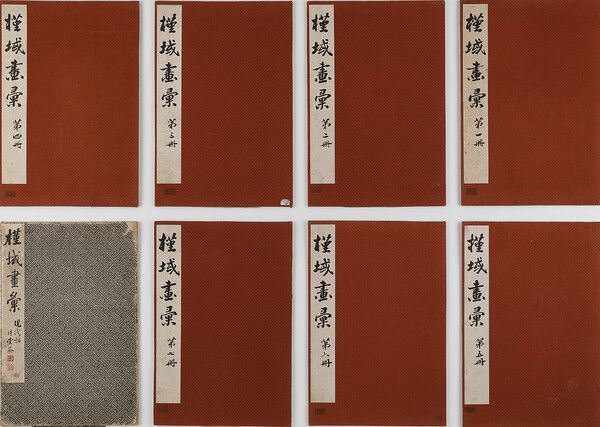 槿域畫彙 第一冊
槿域畫彙 第二冊
槿域畫彙 第三冊
槿域畫彙 第四冊
槿域畫彙 第五冊
槿域畫彙 第六冊
槿域畫彙 第七冊
槿域畫彙 現代帖